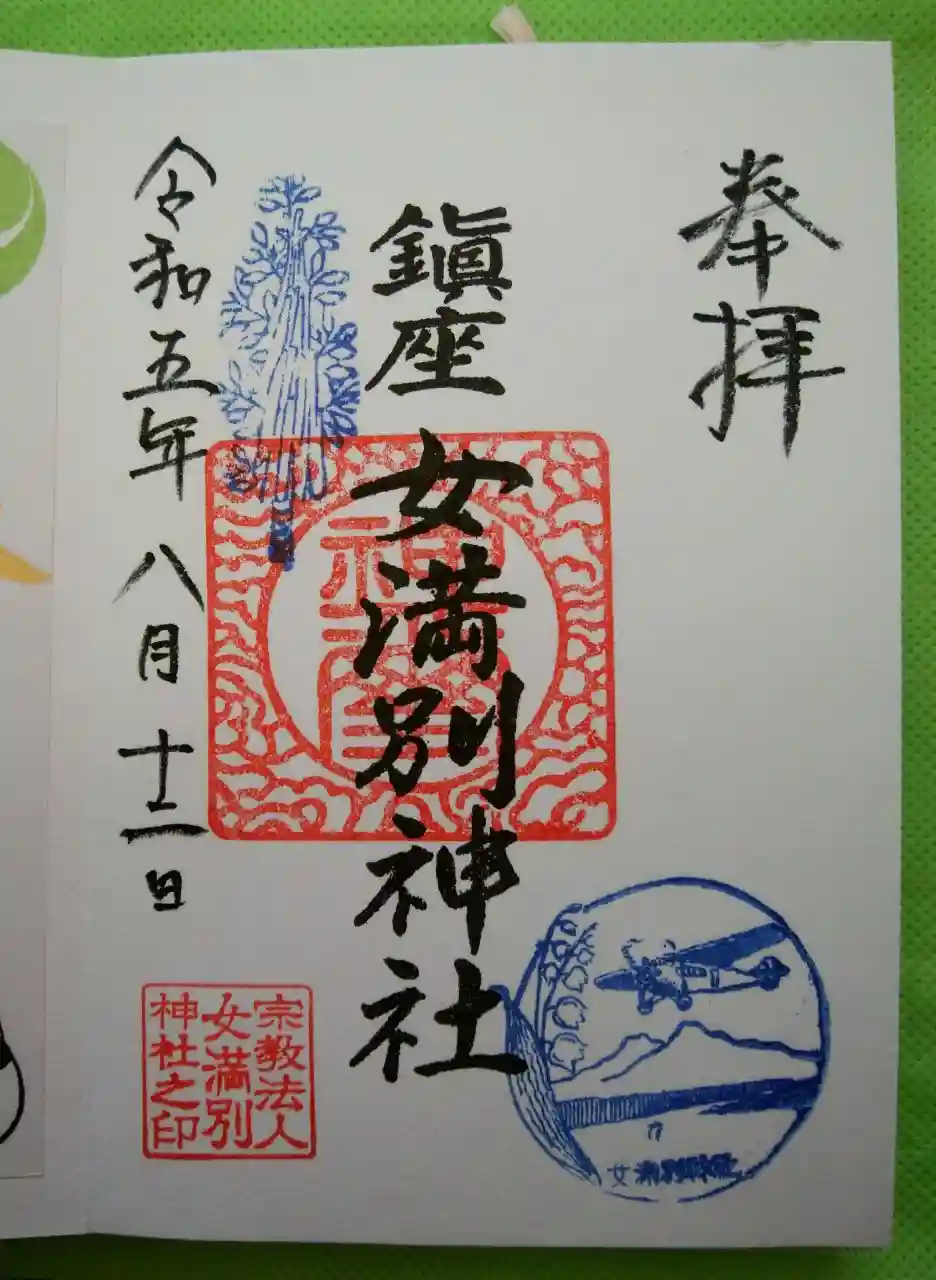 奉拝
鎮座 女満別神社
令和五年 八月 十二日
宗教法人
女満別
神社之印
女満別神社